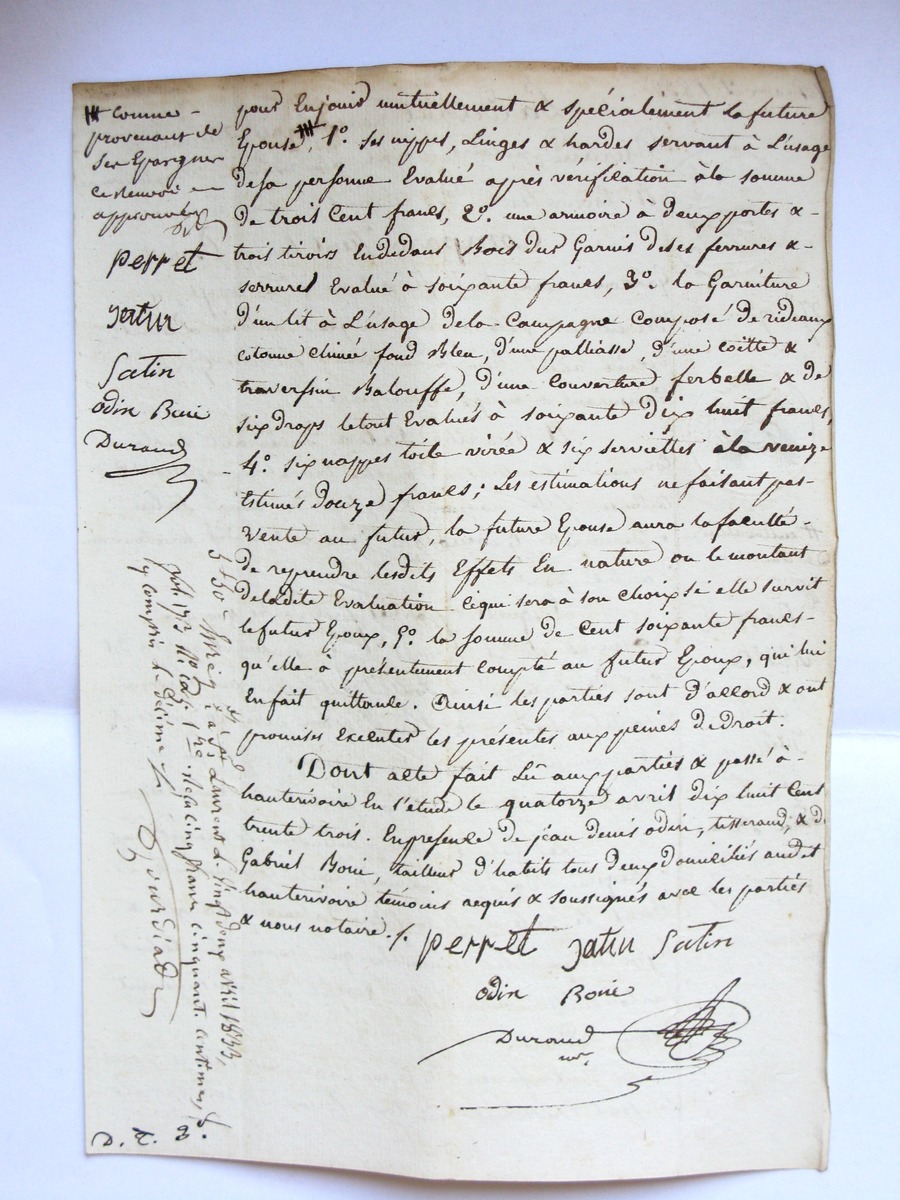 comme
provenant de
ses Epargnes
ce renvoi
approuvé
perret
satin
odin Boüé
Durand
pour Enjouir mutuellement & spécialement la future
Epouse, 1.º ses nippes, Linges & hardes servant à L'usage
desa personne Evalué après vérification àla somme
de trois Cent francs, 2.º une armoire à deux portes &
trois tiroirs Endedans Bois dur Garnis deses ferrures &
serrures Evalué à soixante francs, 3.º la Garniture
d'un lit à L'usage dela Campagne Composé de rideaux
cotonne chinée fond Bleu, d'une palliasse, d'une coitte &
traversin Balouffe, d'une Couverture ferbelle & de
six draps letout Evalués à soixante dix huit francs,
4.º six nappes toile virée & six serviettes àla venize
Estimés douze francs; Les estimations nefaisant pas-
vente au futur, la future Epouse aura lafaculté-
de reprendre lesdits Effets En nature ou le montant
deladite Evaluation cequi sera à son choix si elle survit
lefutur Epoux, 5.º la somme de Cent soixante francs-
qu'elle à présentement Compté au futur Epoux, qui lui
En fait quittance. Ainsi les parties sont d'accord & ont
promises Executer les présentes aux peines de droit.
Dont acte fait Lû aux parties & passé à-
hauterivoire En l'étude le quatorze avril dix huit Cent
trente trois. Enpresence de jean denis odin, tisserand, & de
Gabriel Boüé, tailleur d'habits tous deux domiciliés audit
hauterivoire témoins requis & soussignés avec les parties
& nous notaire ./.
perret satin
odin Boüé
Durand
nre
Laurent Le vingt deux avril 1833
cinq francs cinquante centimes
y compris le décime